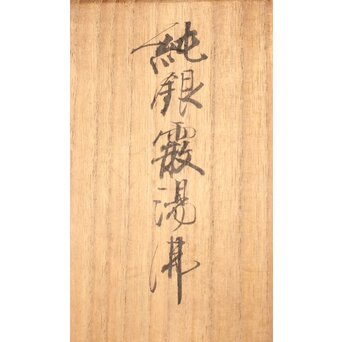 純銀霰湯沸